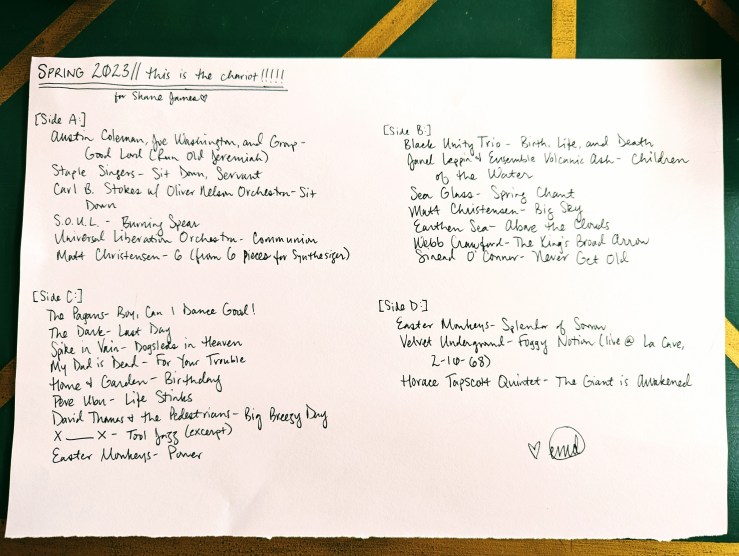 SPRING 2023// this is the chariot!!!!!
for Shane James♡
[Side A:]
Austin Coleman, Joe Washington, and Group-
Good Lord (Run Old Jeremiah)
Staple Singers- Sit Down, Servant
Carl B. Stokes w/ Oliver Nelson Orchestra- Sit
Down
S.O.U.L. - Burning Spear
Universal Liberation Orchestra- Communion
Matt Christensen- 6 (from 6 pieces for Synthesizer)
[Side B:]
Black Unity Trio- Birth, Life, and Death
Janel Leppin & Ensemble Volcanic Ash- Children
of the Water
Sea Glass- Spring Chant
Matt Christensen- Big Sky
Earthen Sea- Above the Clouds
Webb Crawford- The King's Broad Arrow
Sinead O'Connor- Never Get Old
[Side C:]
The Pagans- Boy, Can I Dance Good!
The Dark- Last Day
Spike in Vain- Dogsleds in Heaven
My Dad is Dead- For Your Trouble
Home & Garden- Birthday
Pere Ubu- Life Stinks
David Thomas & the Pedestrians- Big Breezy Day
X__X- Tool Jazz (excerpt)
Easter Monkeys- Power
[Side D:]
Easter Monkeys- Splendor of Sorrow
Velvet Underground- Foggy Notion (live @ La Cave,
2-10-68)
Horace Tapscott Quintet- The Giant is Awakened
♡ emd